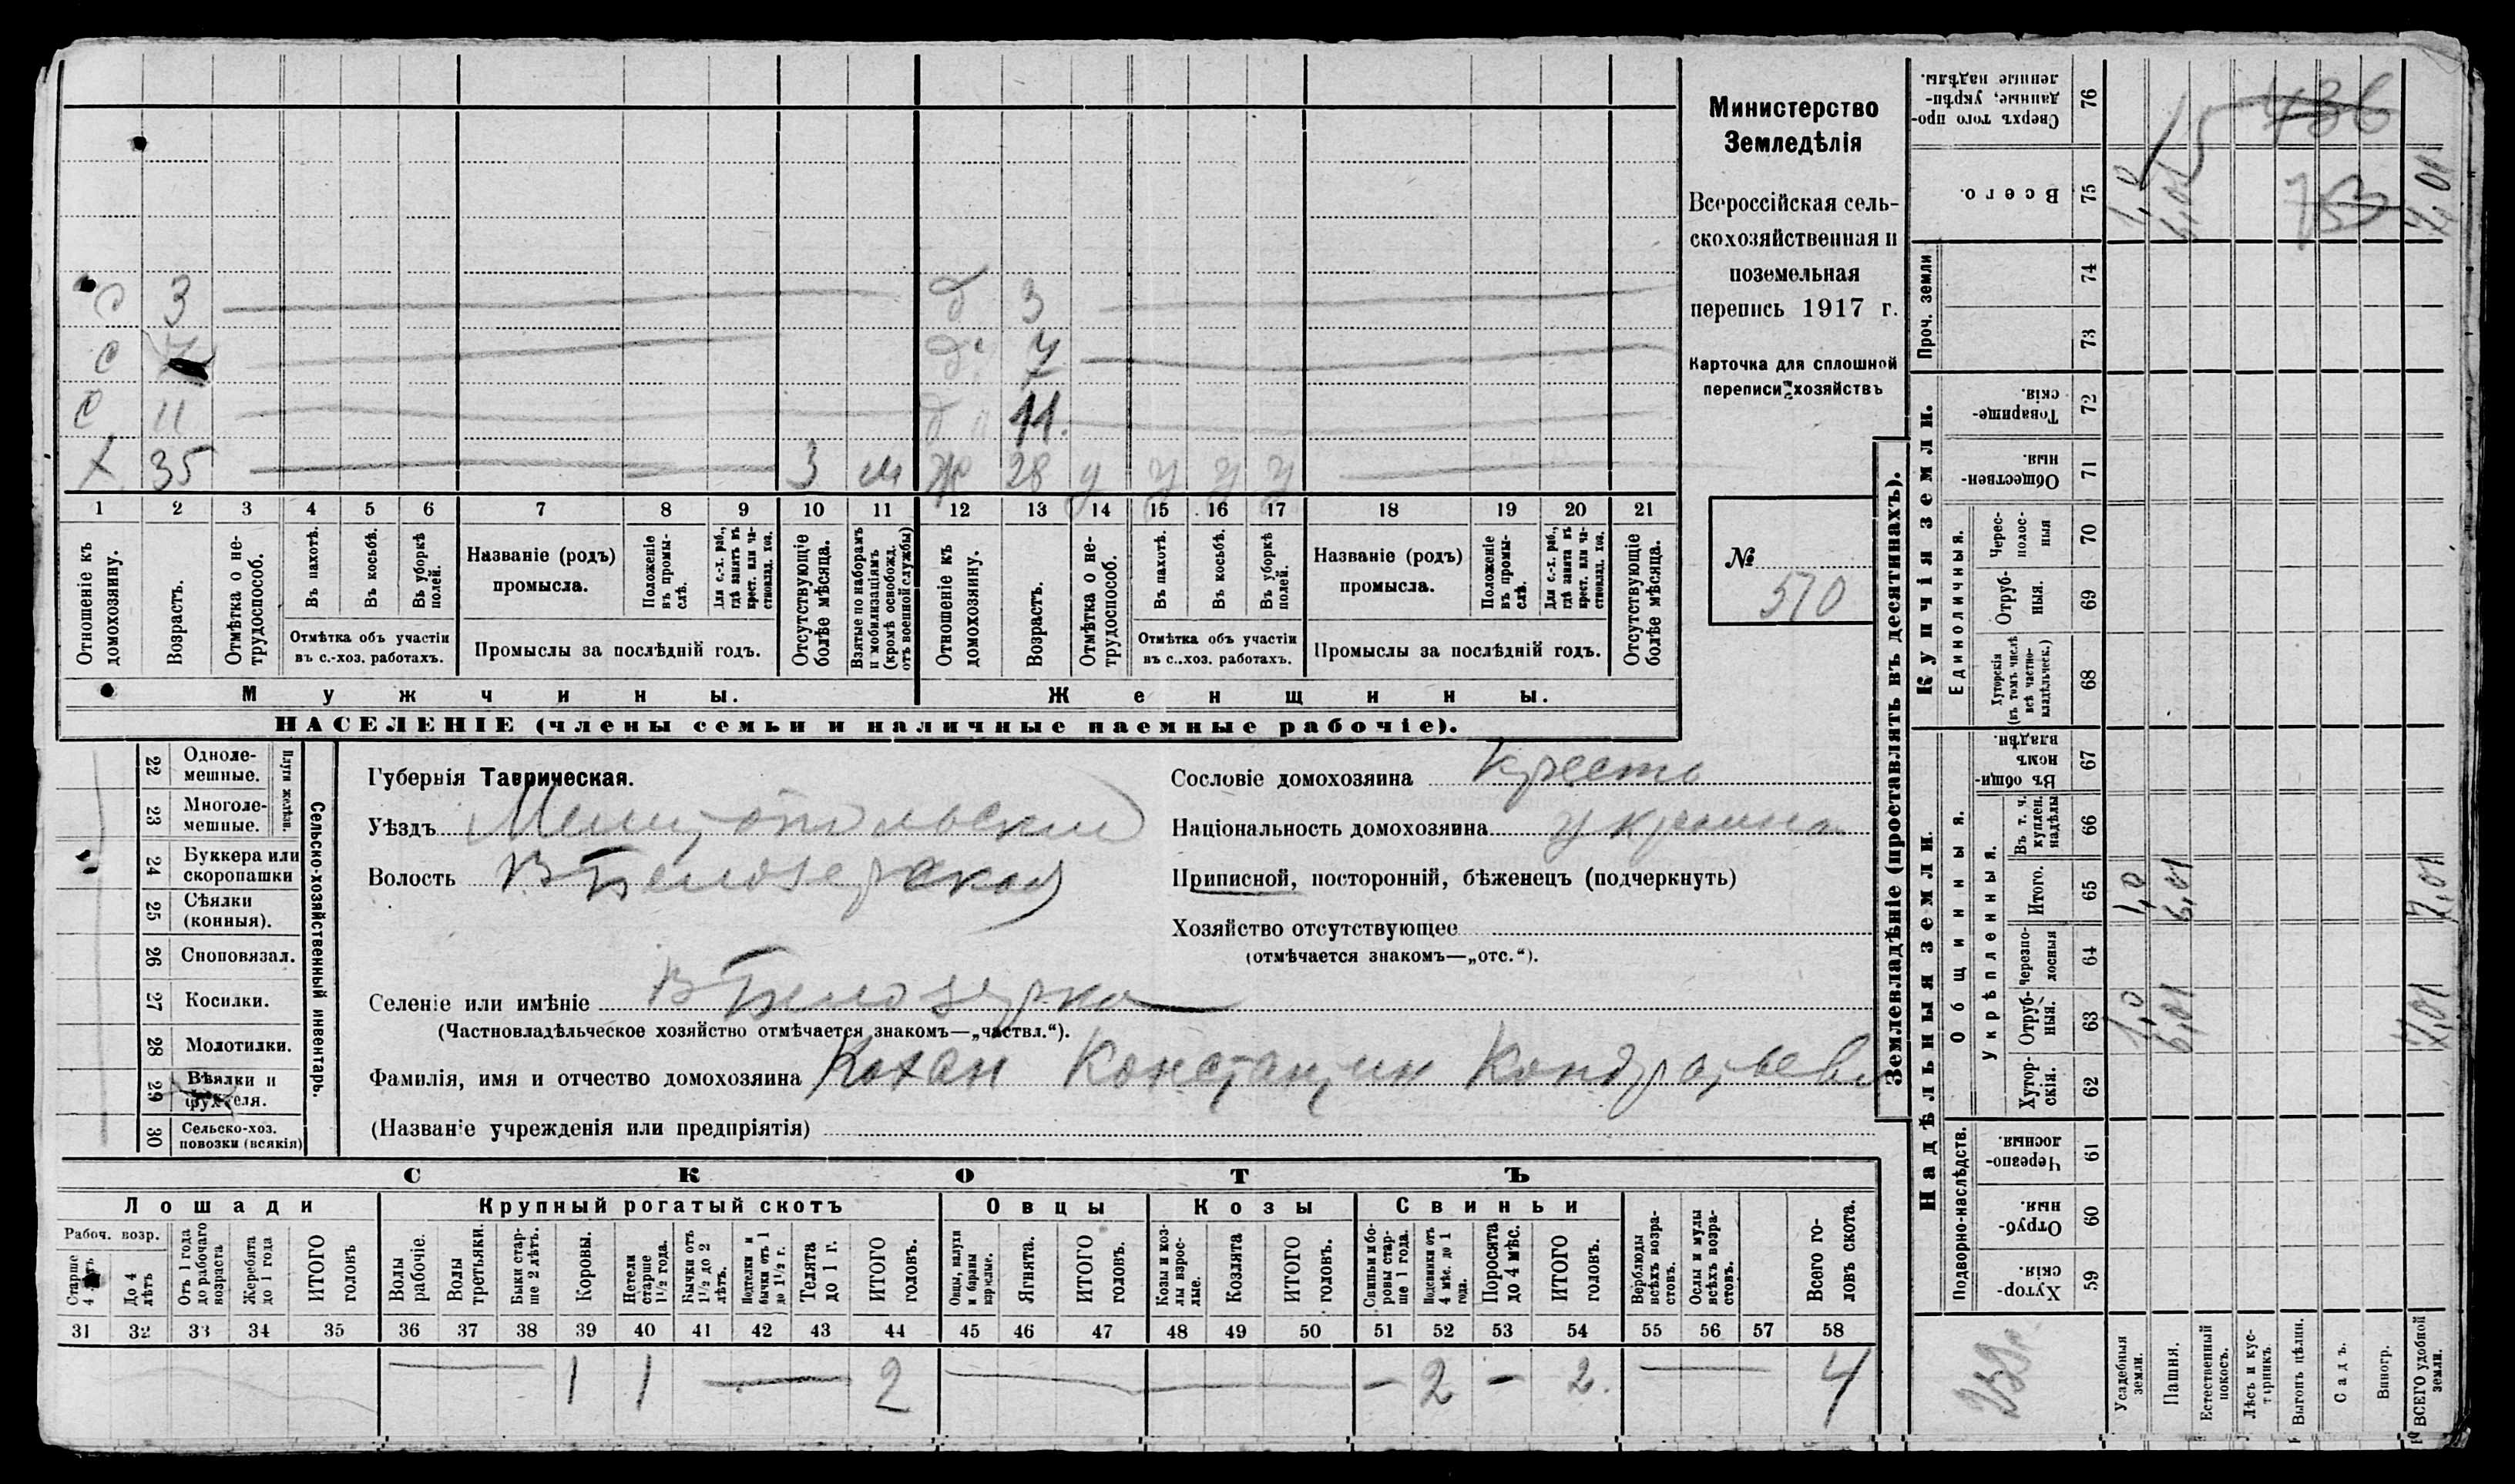 Министерство
Земледѣлія
Всероссійская сель-
скохозяйственная и
поземельная
перепись 1917 г.
Карточка для сплошной
переписи хозяйствъ
№ 510
с 3 д 3
с 7 д. 7
с 11 д 11.
х 35 3 м ж 28 у у у у
1 2 3 4 5 6 7 8 9 10 11 12 13 14 15 16 17 18 19 20 21
Отношеніе къ домохозяину.
Возрастъ.
Отмѣтка о не-трудоспособ.
Въ пахотѣ.
Въ косьбѣ.
Въ уборкѣ полей.
Отмѣтка объ участіи
въ с.-хоз. работахъ.
Названіе (родъ)
промысла.
Положеніе въ промы-слѣ.
Для с.-х. раб., гдѣ занятъ въ крест. или ча-стновлад. хоз.
Промыслы за послѣдній годъ.
Отсутствующіе болѣе мѣсяца.
Взятые по наборамъ и мобилизаціямъ (кромѣ освобожд. отъ военной службы)
Отношеніе къ домохозяину.
Возрастъ.
Отмѣтка о не-трудоспособ.
Въ пахотѣ.
Въ косьбѣ.
Въ уборкѣ полей.
Отмѣтка объ участіи
въ с.-хоз. работахъ.
Названіе (родъ)
промысла.
Положеніе въ промы-слѣ.
Для с.-х. раб., гдѣ занята въ крест. или ча-стновлад. хоз.
Промыслы за послѣдній годъ.
Отсутствующіе болѣе мѣсяца.
Мужчины. Женщины.
НАСЕЛЕНІЕ (члены семьи и наличные наемные рабочіе).
Сельско-хозяйственный инвентарь.
Плуги желѣзн.
22 Одноле-мешные.
23 Многоле-мешные.
24 Буккера или скоропашки
25 Сѣялки (конныя).
26 Сноповязал.
27 Косилки.
28 Молотилки.
29 Вѣялки и фухтеля.
30 Сельско-хоз. повозки (всякія)
Губернія Таврическая.
Уѣздъ Мелитопольский
Волость В Белозерская
Селеніе или имѣніе В Белозерка
(Частновладѣльческое хозяйство отмѣчается знакомъ—„частвл.“).
Фамилія, имя и отчество домохозяина Кохан Константин Кондратьеви
(Названіе учрежденія или предпріятія)
Сословіе домохозяина крест
Національность домохозяина украина
Приписной, посторонній, бѣженецъ (подчеркнуть)
Хозяйство отсутствующее
(отмѣчается знакомъ—„отс.“).
СКОТЪ
Лошади Крупный рогатый скотъ Овцы Козы Свиньи
Рабоч. возр.
Старше 4 лѣтъ
До 4 лѣтъ
Отъ 1 года до рабочаго возраста
Жеребята до 1 года
ИТОГО головъ
Волы рабочіе.
Волы третьяки.
Быки стар-ше 2 лѣтъ.
Коровы.
Нетели старше 1½ года.
Бычки отъ 1½ до 2 лѣтъ.
Нетелки и бычки отъ 1 до 1½ г.
Телята до 1 г.
ИТОГО головъ.
Овцы, валухи и бараны взрослые.
Ягнята.
ИТОГО головъ.
Козы и коз-лы взрос-лые.
Козлята
ИТОГО головъ.
Свиньи и бо-ровы стар-ше 1 года.
Подсвинки отъ 4 мѣс. до 1 года.
Поросята до 4 мѣс.
ИТОГО головъ.
Верблюды всѣхъ возра-стовъ.
Ослы и мулы всѣхъ возра-стовъ.
Всего го-ловъ скота.
31 32 33 34 35 36 37 38 39 40 41 42 43 44 45 46 47 48 49 50 51 52 53 54 55 56 57 58
1 1 2 2 2. 4
Землевладѣніе (проставлять въ десятинахъ).
Надѣльныя земли.
Подворно-наслѣдств.
59 Хутор-скія.
60 Отруб-ныя.
61 Черезпо-лосныя
Общинныя.
Укрѣпленныя.
62 Хутор-скія.
63 Отруб-ныя. 1,0 6,01 7,01
64 Черезпо-лосныя
65 Итого. 1,0 6,01 7,01
66 Въ т. ч. куплен. надѣлы
67 Въ общи-номъ владѣн.
Купчія земли.
Единоличныя.
68 Хуторскія (въ томъ числѣ всѣ частно-владѣльческ.)
69 Отруб-ныя.
70 Черес-полос-ныя
71 Обществен-ныя.
72 Товарище-скія.
Проч. земли
73
74
75 Всего. 1,0 6,01 753 7,01
76 Сверхъ того про-данные, укрѣп-ленные надѣлы. 436
Усадебныя земли.
Пашня.
Естественный покосъ.
Лѣсъ и кус-тарникъ.
Выгонъ цѣлин.
Садъ.
Виногр.
ВСЕГО удобной земли.